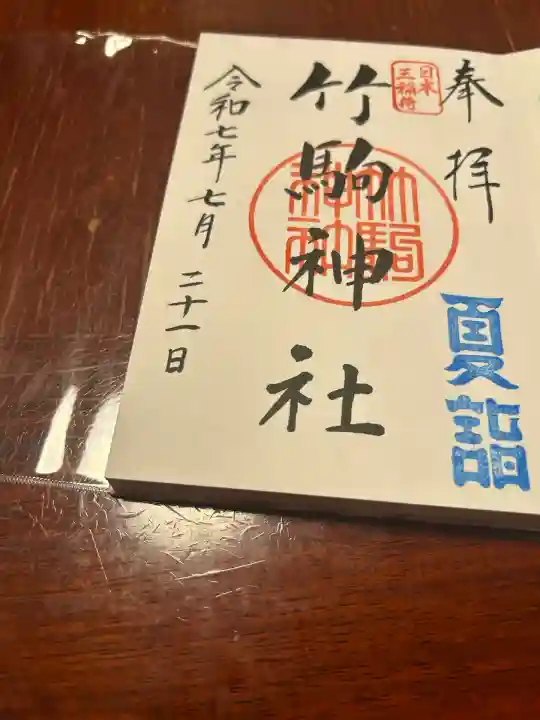 奉拝
日本
三稲荷
夏詣
竹駒神社
竹駒
神社
令和七年七月二十一日